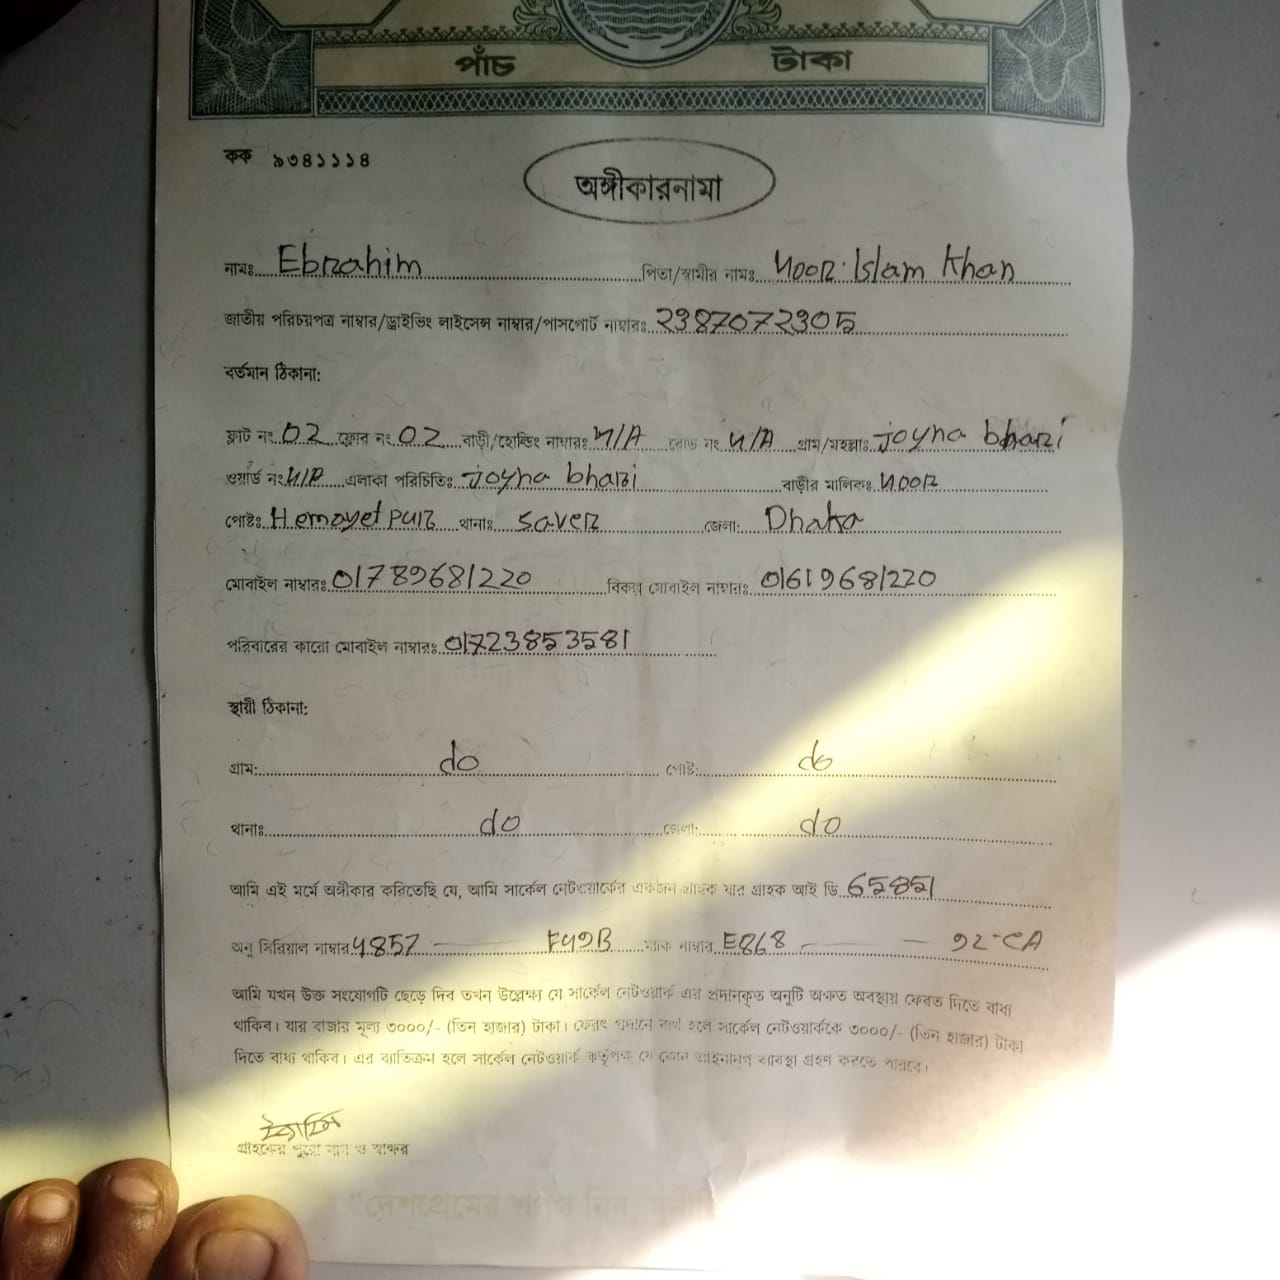 পাঁচ টাকা
কক ৯৩৪১১১৪
অঙ্গীকারনামা
নামঃ Ebrahim পিতা/স্বামীর নামঃ Noor Islam Khan
জাতীয় পরিচয়পত্র নাম্বার/ড্রাইভিং লাইসেন্স নাম্বার/পাসপোর্ট নাম্বারঃ 2387072305
বর্তমান ঠিকানা:
ফ্লাট নং 02 ফ্লোর নং 02 বাড়ী/হোল্ডিং নাম্বারঃ N/A রোড নং N/A গ্রাম/মহল্লাঃ Joyna bhari
ওয়ার্ড নং N/A এলাকা পরিচিতিঃ Joyna bhari বাড়ীর মালিকঃ Noor
পোষ্টঃ Hemayet pur থানাঃ Saver জেলা: Dhaka
মোবাইল নাম্বারঃ 01789681220 বিকল্প মোবাইল নাম্বারঃ 01619681220
পরিবারের কারো মোবাইল নাম্বারঃ 01723853581
স্থায়ী ঠিকানা:
গ্রাম: do পোষ্ট: do
থানাঃ do জেলা: do
আমি এই মর্মে অঙ্গীকার করিতেছি যে, আমি সার্কেল নেটওয়ার্কের একজন গ্রাহক যার গ্রাহক আই ডি 65851
অনু সিরিয়াল নাম্বার 4857 — F49B ম্যাক নাম্বার E868 — 92-CA
আমি যখন উক্ত সংযোগটি ছেড়ে দিব তখন উল্লেক্ষ্য যে সার্কেল নেটওয়ার্ক এর প্রদানকৃত অনুটি অক্ষত অবস্থায় ফেরত দিতে বাধ্য
থাকিব। যার বাজার মূল্য ৩০০০/- (তিন হাজার) টাকা। ফেরৎ প্রদানে ব্যর্থ হলে সার্কেল নেটওয়ার্ককে ৩০০০/- (তিন হাজার) টাকা
দিতে বাধ্য থাকিব। এর ব্যতিক্রম হলে সার্কেল নেটওয়ার্ক কর্তৃপক্ষ যে কোন আইনানুগ ব্যবস্থা গ্রহণ করতে পারবে।
গ্রাহকের পুরো নাম ও স্বাক্ষর
"দেশপ্রেমের শপথ নিন,